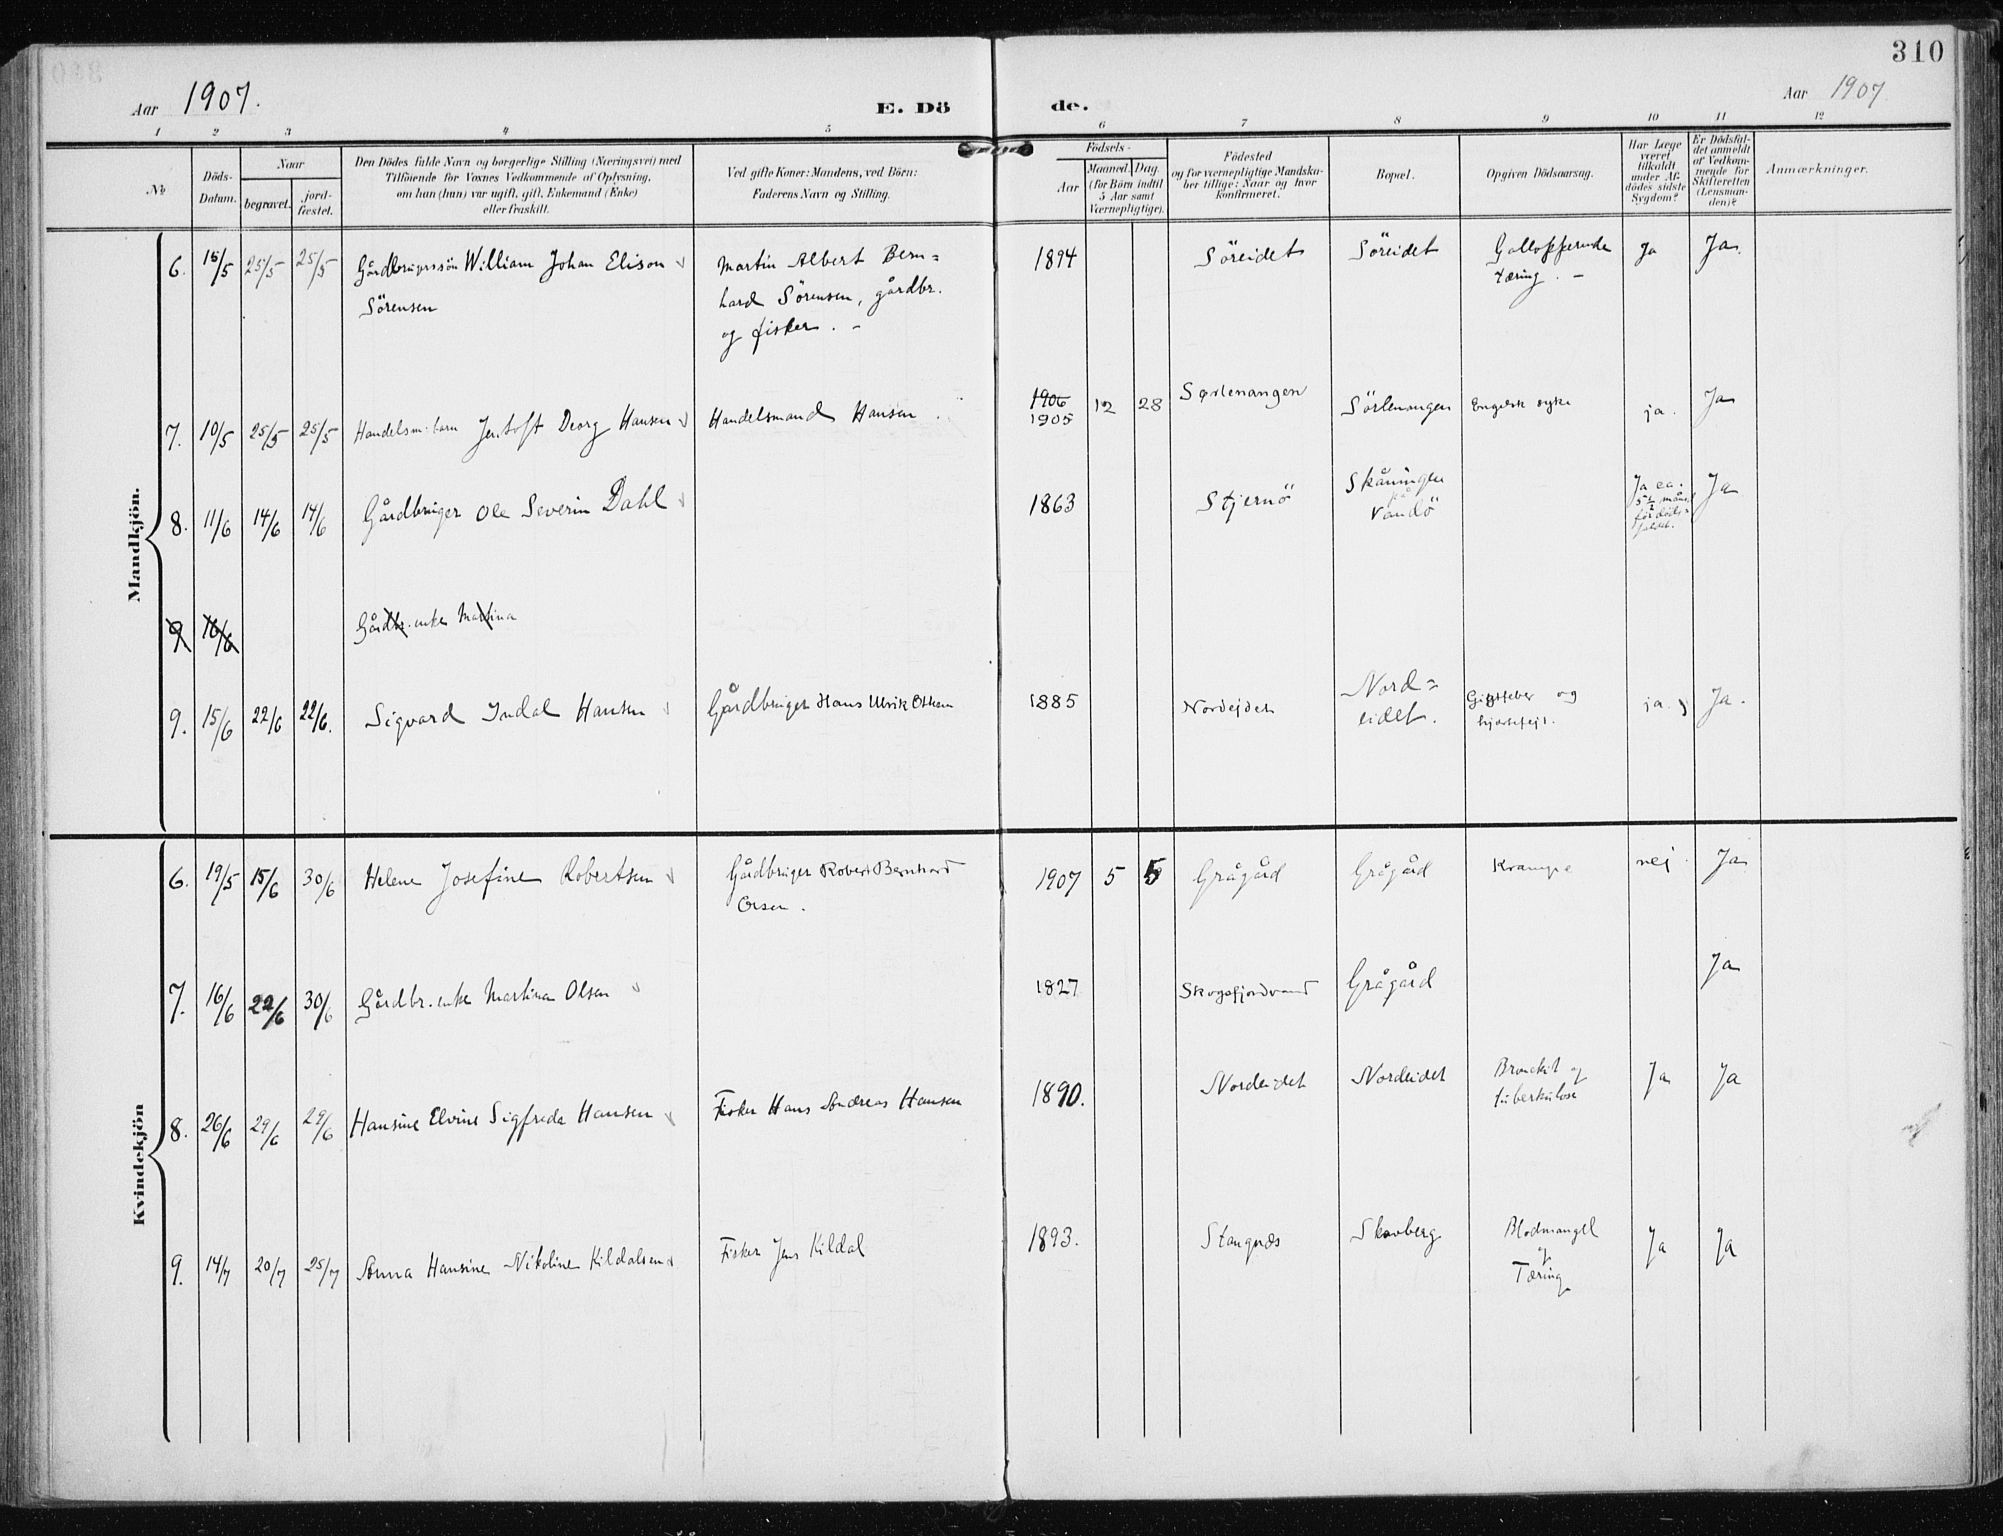 310
Aar 1907.
E. Dö
de.
Aar 1907
1 2 3 4 5 6 7 8 9 10 11 12
No
Döds-
Datum.
Naar
begravet.
jord-
fæstet.
Den Dödes fulde Navn og borgerlige Stilling (Næringsvei) med
Tilföiende for Voxnes Vedkommende af Oplysning,
om han (hun) var ugift, gift, Enkemand (Enke)
eller fraskilt.
Ved gifte Koner: Mandens, ved Börn:
Faderens Navn og Stilling.
Födsels-
Aar
Maaned. Dag.
(for Börn indtil
5 Aar samt
Værnepligtige).
Födested
og for værnepligtige Mandska-
ber tillige: Naar og hvor
konfirmeret.
Bopæl.
Opgiven Dödsaarsag.
Har Læge
været
tilkaldt
under Af-
dödes sidste
Sygdom?
Er Dödsfal-
det anmeldt
af Vedkom-
mende for
Skifteretten
(Lensman-
den)?
Anmærkninger.
Mandkjön.
6. 15/5 25/5 25/5 Gårdbrugerssön William Johan Elison Martin Albert Bern= 1894 Söreidet Söreidet Galopperende Ja Ja.
Sörensen hard Sörensen, gårdbr. tæring. –
og fisker. –
7. 10/5 25/5 25/5 Handelsm. barn Jentoft Georg Hansen Handelsmand Hansen. 1906 12 28 Sørlenangen Sörlenangen Engelsk syke ja. Ja
1905
8. 11/6 14/6 14/6 Gårdbruger Ole Severin Dahl 1863 Stjernö Skåningen Ja ca. Ja
på 5 1/2 mån.
Vandö før döds=
faldet.
9 16/6 Gårdbr. enke Martina
9. 15/6 22/6 22/6. Sigvard Indal Hansen Gårdbruger Hans Ulrik Olsen 1885 Nordejdet Nord= Gigtfeber og ja. Ja.
eidet. hjertefejl.
Kvindekjön
6. 19/5 15/6 30/6 Helene Josefine Robertsen Gårdbruger Robert Bernhard 1907 5 5 Grågård Grågård Krampe nej. Ja
Olsen.
7. 16/6 22/6 30/6 Gårdbr. enke Martina Olsen 1827 Skogsfjordvand Grågård Ja
8. 26/6 29/6 29/6 Hansine Elvine Sigfreda Hansen Fisker Hans Andreas Hansen 1890. Nordeidet Nordeidet Bronckit og Ja Ja
tuberkulose
9. 14/7 20/7 25/7 Anna Hansine Nikoline Kildalsen Fisker Jens Kildal 1893. Stangnæs Skavberg Blodmangel Ja Ja
og
Tæring